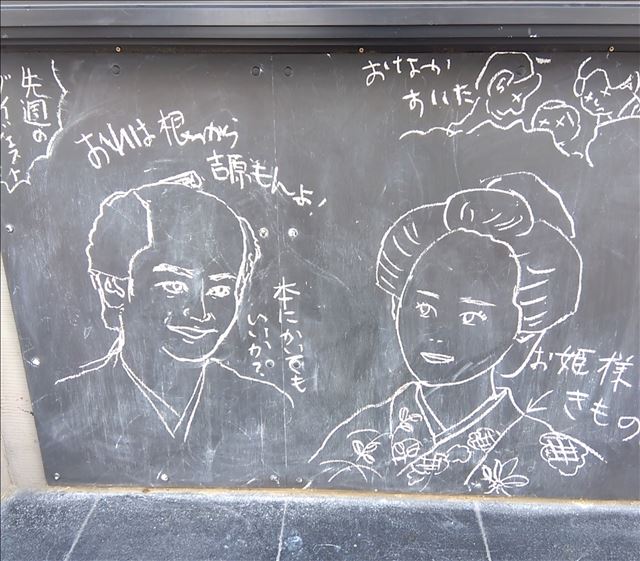 先週の
ダイジェスト
おれは根っから
吉原もんよ!
本にかいても
いいか?
おなか
すいた
お姫様
きもの